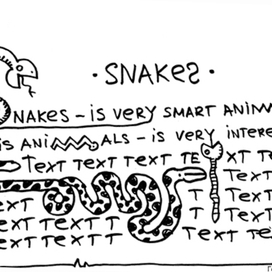 ·SNAKES·
SNAKES – iS VERY SMART ANiM
iS ANiMALS – iS VERY iNTERE
TEXT TEXT TEXT TE XT TE
TEXT
EXT T TEXT
EXT TEXT T T TEXT
EXT TEXT T TEXT TE